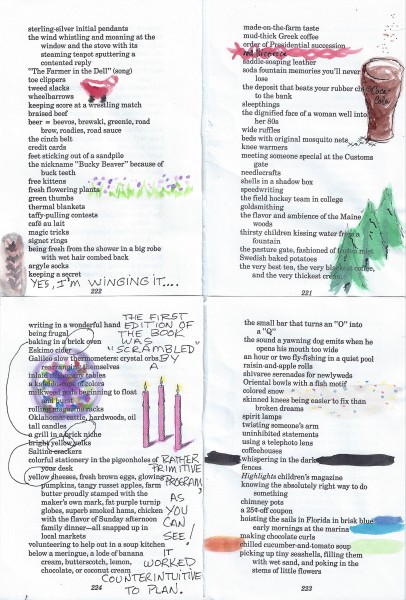 sterling-silver initial pendants
the wind whistling and moaning at the
window and the stove with its
steaming teapot sputtering a
contented reply
"The Farmer in the Dell" (song)
toe clippers
tweed slacks
wheelbarrows
keeping score at a wrestling match
braised beef
beer = beevos, brewski, greenie, road
brew, roadies, road sauce
the cinch belt
credit cards
feet sticking out of a sandpile
the nickname "Bucky Beaver" because of
buck teeth
free kittens
fresh flowering plants
green thumbs
thermal blankets
taffy-pulling contests
café au lait
magic tricks
signet rings
being fresh from the shower in a big robe
with wet hair combed back
argyle socks
keeping a secret
YES, I'M WINGING IT....
222
made-on-the-farm taste
mud-thick Greek coffee
order of Presidential succession
saddle-soaping leather
soda fountain memories you'll never
lose
the deposit that beats your rubber
to the bank
sleepthings
the dignified face of a woman well into
her 80s
wide ruffles
beds with original mosquito nets
knee warmers
meeting someone special at the Customs
gate
needlecrafts
shells in a shadow box
speedwriting
the field hockey team in college
goldsmithing
the flavor and ambience of the Maine
woods
thirsty children kissing water from a
fountain
the pasture gate, fashioned of
Swedish baked potatoes
the very best ten, the very blackest coffee,
and the very thickest cream
Coca-Cola
221
writing in a wonderful hand
being frugal
baking in a brick oven
Eskimo cider
Galileo slow thermometers: crystal orbs
rearranging themselves
tables
a kaleidoscope of colors
milkweed pods beginning to float
and burst
rolling magazine racks
Oklahoma: cattle, hardwoods, oil
tall candles
a grill in a brick niche
bright yellow yolks
Saltine crackers
colorful stationery in the pigeonholes of
your desk
yellow cheeses, fresh brown eggs, glowing
pumpkins, tangy russet apples, farm
butter proudly stamped with the
maker's own mark, fat purple turnip
globes, superb smoked hams, chicken
with the flavor of Sunday afternoon
family dinner—all snapped up in
local markets
volunteering to help out in a soup kitchen
below a meringue, a lode of banana
cream, butterscotch, lemon,
chocolate, or coconut cream
224
THE FIRST
EDITION OF
THE BOOK
WAS
"SCRAMBLED"
BY
A
RATHER
PRIMITIVE
PROGRAM,
AS
YOU
CAN
SEE!
IT
WORKED
COUNTERINTUITIVE
TO PLAN.
the small bar that turns an "O" into
a "Q"
the sound a yawning dog emits when he
opens his mouth too wide
an hour or two fly-fishing in a quiet pool
raisin-and-apple rolls
shivaree serenades for newlyweds
Oriental bowls with a fish motif
colored snow
skinned knees being easier to fix than
broken dreams
spirit lamps
twisting someone's arm
uninhibited statements
using a telephoto lens
coffeehouses
whispering in the dark
fences
Highlights children's magazine
knowing the absolutely right way to do
something
chimney pots
a 25¢-off coupon
hoisting the sails in Florida in brisk blue
early mornings at the marina
making chocolate curls
chilled cucumber-and-tomato soup
picking up tiny seashells, filling them
with wet sand, and poking in the
stems of little flowers
223